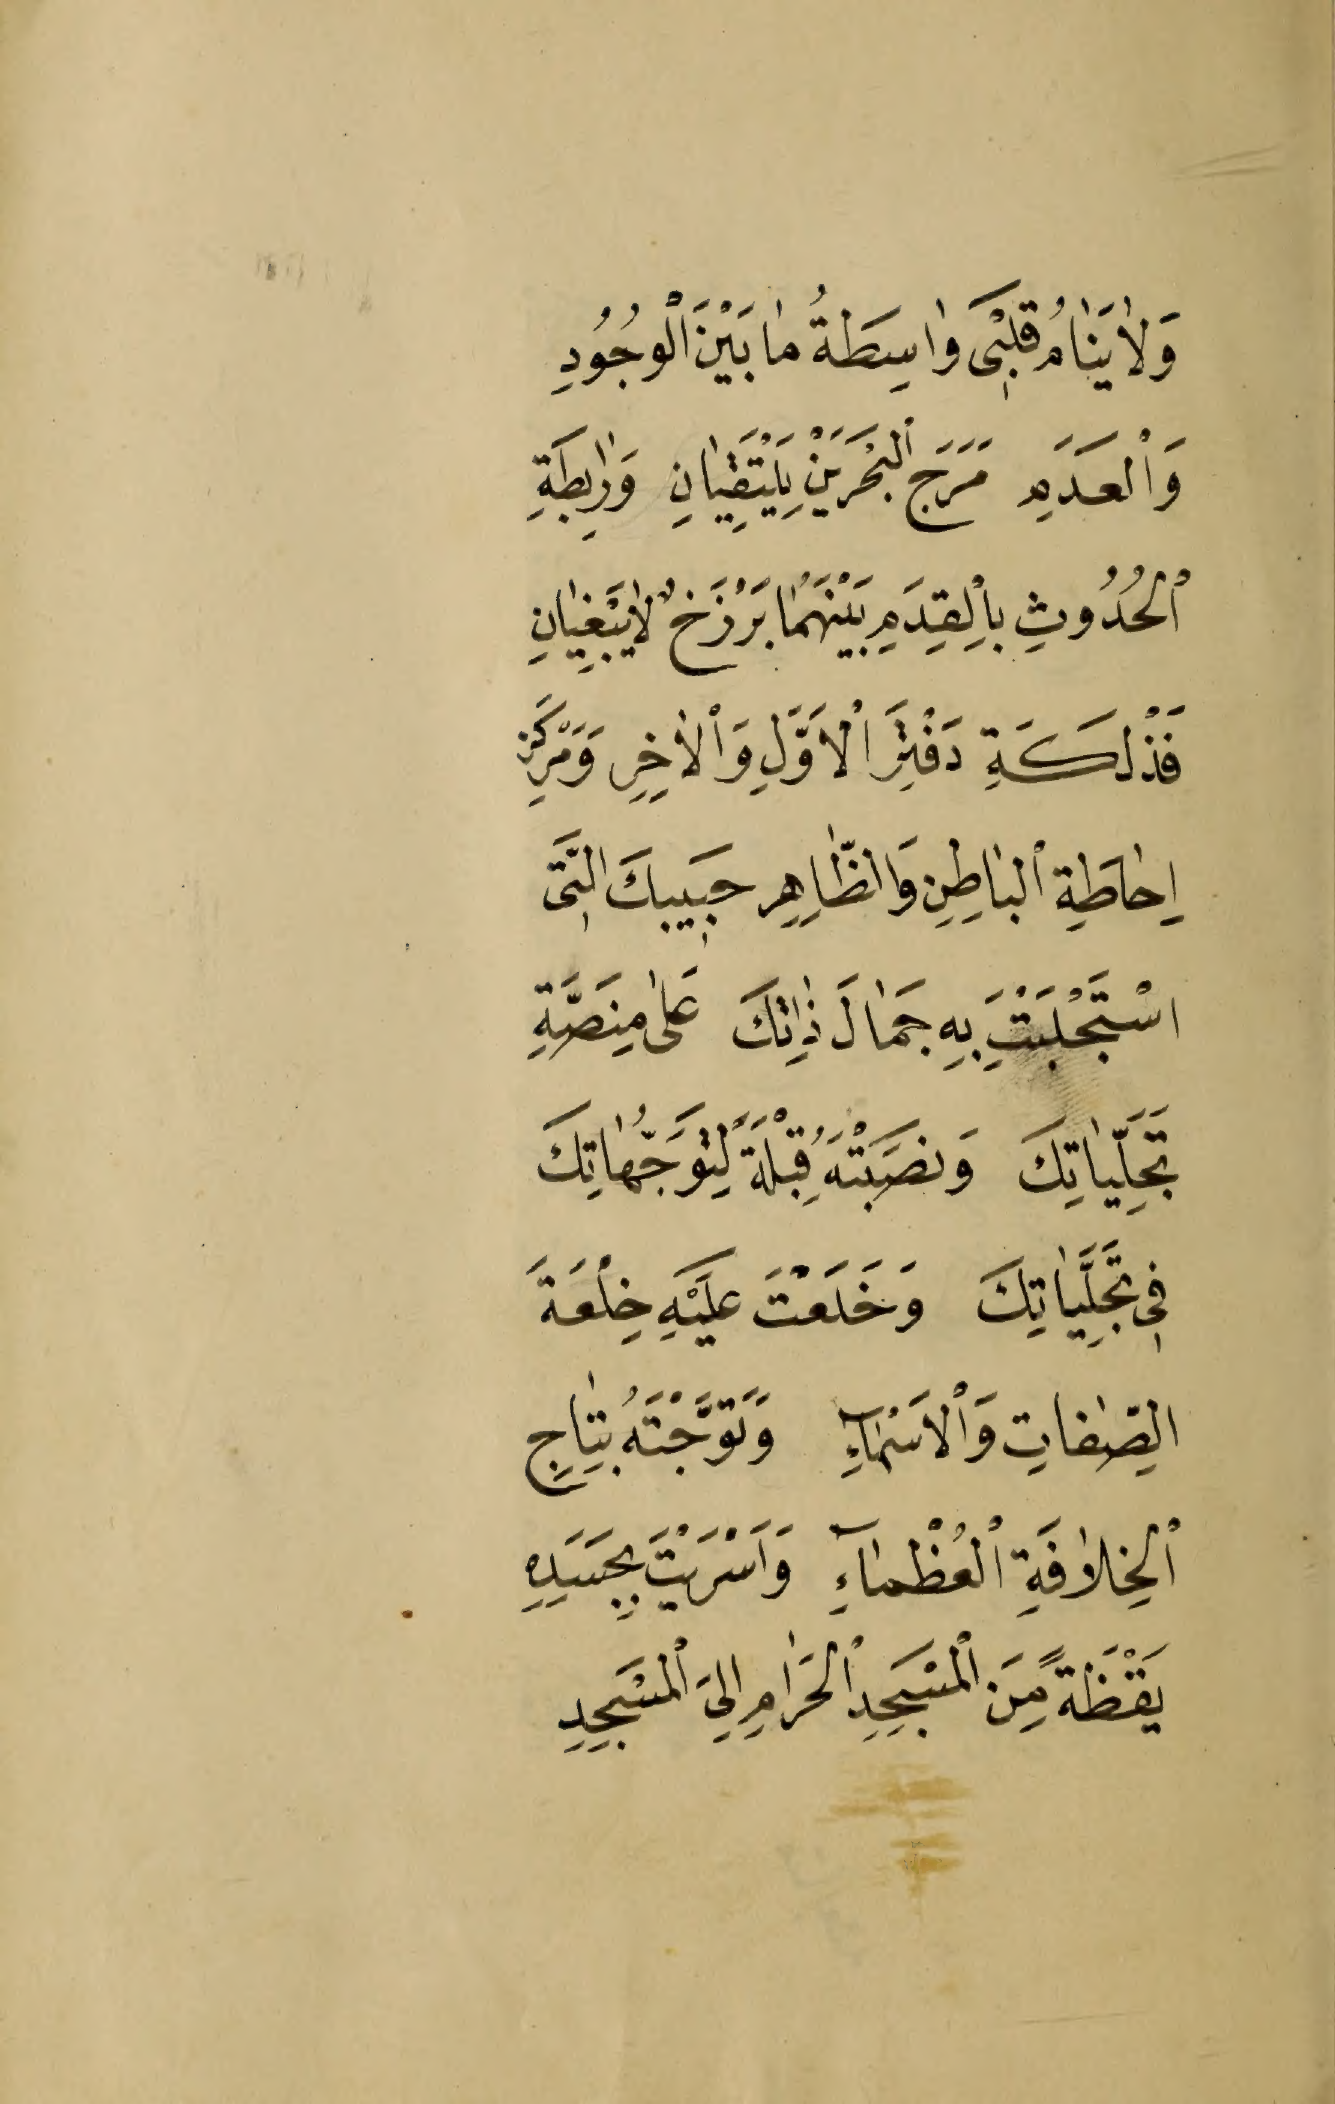 وَلَا يَنَامُ قَلْبِى وَاسِطَةُ مَا بَيْنَ الْوُجُودِ
وَالْعَدَمِ مَرَجَ الْبَحْرَيْنِ يَلْتَقِيَانِ وَرَابِطَةِ
الْحُدُوثِ بِالْقِدَمِ بَيْنَهُمَا بَرْزَخٌ لَا يَبْغِيَانِ
فَذْلَكَةِ دَفْتَرِ الْاَوَّلِ وَالْاٰخِرِ وَمَرْكَزِ
اِحَاطَةِ الْبَاطِنِ وَالظَّاهِرِ حَبِيبِكَ الَّتِى
اسْتَجْلَبْتَ بِهِ جَمَالَ ذَاتِكَ عَلٰى مِنَصَّةِ
تَجَلِّيَاتِكَ وَنَصَبْتَهُ قِبْلَةً لِتَوَجُّهَاتِكَ
فِى تَجَلِّيَاتِكَ وَخَلَعْتَ عَلَيْهِ خِلْعَةَ
الصِّفَاتِ وَالْاَسْمَآءِ وَتَوَّجْتَهُ بِتَاجِ
الْخِلَافَةِ الْعُظْمَآءِ وَاَسْرَيْتَ بِجَسَدِهِ
يَقْظَةً مِنَ الْمَسْجِدِ الْحَرَامِ اِلَى الْمَسْجِدِ